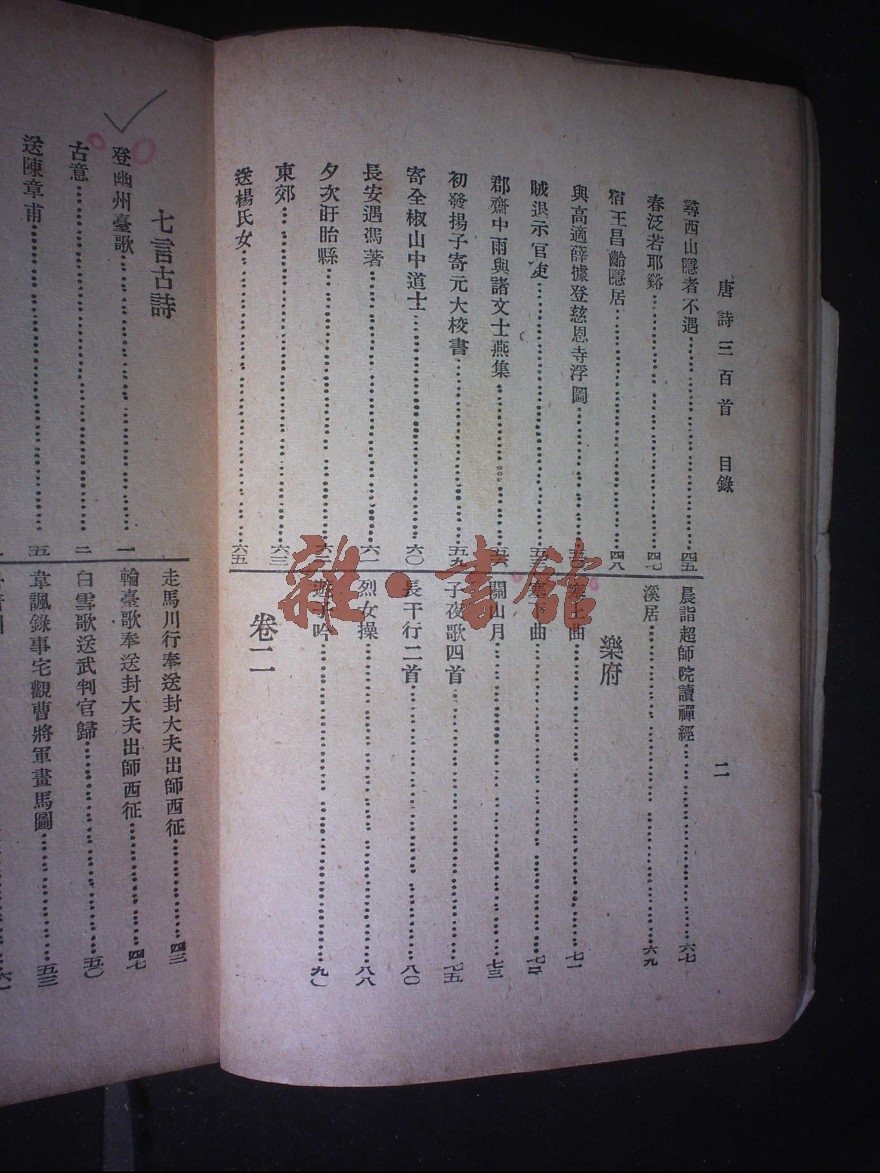 唐詩三百首 目錄
二
尋西山隱者不遇 四五
春泛若耶谿 四七
宿王昌齡隱居 四八
與高適薛據登慈恩寺浮圖
賊退示官吏
郡齋中雨與諸文士燕集
初發揚子寄元大校書 五九
寄全椒山中道士 六〇
長安遇馮著 六一
夕次盱眙縣
東郊 六三
送楊氏女 六五
晨詣超師院讀禪經 六七
溪居 六九
樂府
塞上曲 七一
塞下曲 七二
關山月 七三
子夜歌四首 七五
長干行二首 八〇
烈女操 八八
遊子吟 九〇
卷二
七言古詩
登幽州臺歌 一
古意 二
送陳章甫 五
走馬川行奉送封大夫出師西征 四三
輪臺歌奉送封大夫出師西征 四七
白雪歌送武判官歸 五〇
韋諷錄事宅觀曹將軍畫馬圖 五三
雜·書館